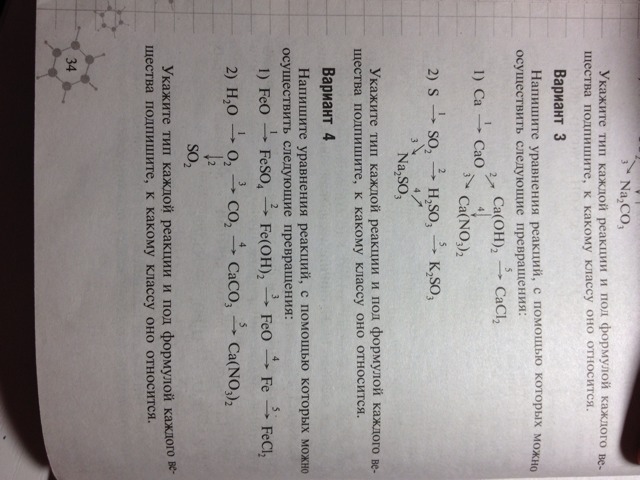 ³↘ Na₂CO₃
Укажите тип каждой реакции и под формулой каждого ве-
щества подпишите, к какому классу оно относится.
Вариант 3
Напишите уравнения реакций, с помощью которых можно
осуществить следующие превращения:
1) Ca —¹→ CaO ²↗ Ca(OH)₂ —⁵→ CaCl₂
⁴↓
³↘ Ca(NO₃)₂
2) S —¹→ SO₂ —²→ H₂SO₃ —⁵→ K₂SO₃
³↘ Na₂SO₃ ⁴↗
Укажите тип каждой реакции и под формулой каждого ве-
щества подпишите, к какому классу оно относится.
Вариант 4
Напишите уравнения реакций, с помощью которых можно
осуществить следующие превращения:
1) FeO —¹→ FeSO₄ —²→ Fe(OH)₂ —³→ FeO —⁴→ Fe —⁵→ FeCl₂
2) H₂O —¹→ O₂ —³→ CO₂ —⁴→ CaCO₃ —⁵→ Ca(NO₃)₂
↓2
SO₂
Укажите тип каждой реакции и под формулой каждого ве-
щества подпишите, к какому классу оно относится.
34